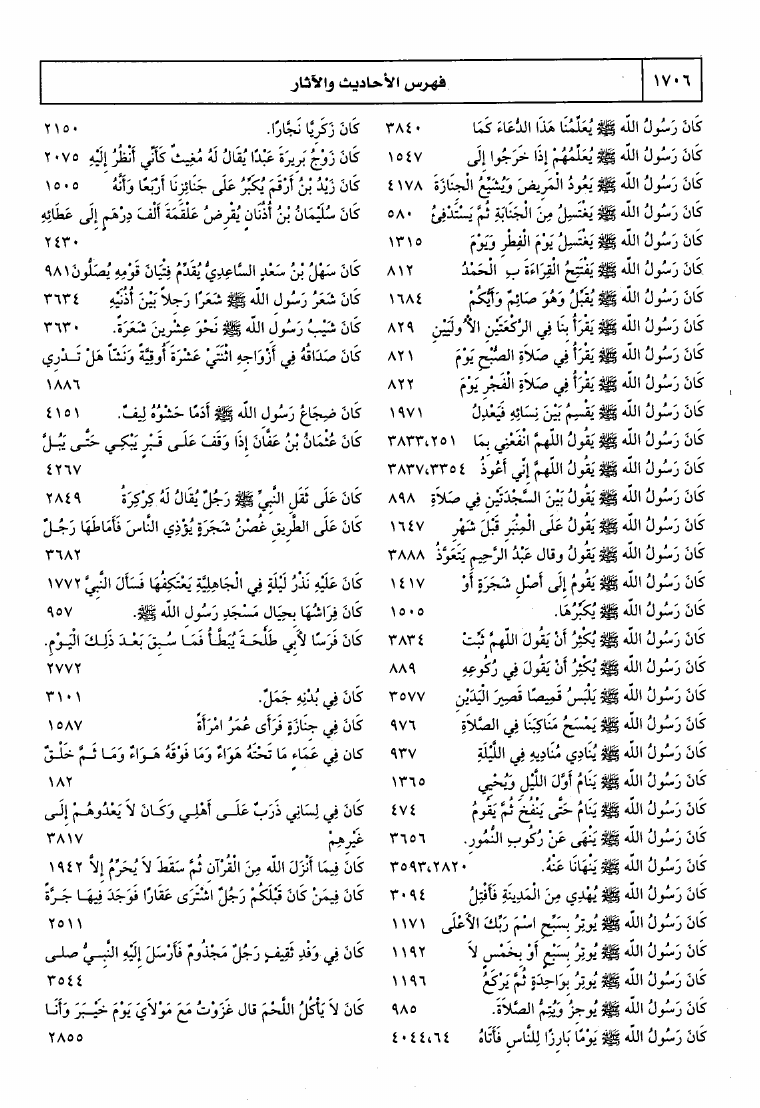 ١٧٠٦
فهرس الأحاديث والآثار
كَانَ رَسُولُ اللَّه ﷺ يُعَلِّمُنَا هَذَا الدُّعَاءَ كَمَا ٣٨٤٠
كَانَ رَسُولُ اللَّه ﷺ يُعَلِّمُهُمْ إِذَا خَرَجُوا إِلَى ١٥٤٧
كَانَ رَسُولُ اللَّه ﷺ يَعُودُ الْمَرِيضَ وَيُشَيِّعُ الْجِنَازَةَ ٤١٧٨
كَانَ رَسُولُ اللَّه ﷺ يَغْتَسِلُ مِنَ الْجَنَابَةِ ثُمَّ يَسْتَدْفِئُ ٥٨٠
كَانَ رَسُولُ اللَّه ﷺ يَغْتَسِلُ يَوْمَ الْفِطْرِ وَيَوْمَ ١٣١٥
كَانَ رَسُولُ اللَّه ﷺ يَفْتَتِحُ الْقِرَاءَةَ بِـ الْحَمْدُ ٨١٢
كَانَ رَسُولُ اللَّه ﷺ يُقَبِّلُ وَهُوَ صَائِمٌ وَأَيُّكُمْ ١٦٨٤
كَانَ رَسُولُ اللَّه ﷺ يَقْرَأُ بِنَا فِي الرَّكْعَتَيْنِ الأُولَيَيْنِ ٨٢٩
كَانَ رَسُولُ اللَّه ﷺ يَقْرَأُ فِي صَلاَةِ الصُّبْحِ يَوْمَ ٨٢١
كَانَ رَسُولُ اللَّه ﷺ يَقْرَأُ فِي صَلاَةِ الْفَجْرِ يَوْمَ ٨٢٢
كَانَ رَسُولُ اللَّه ﷺ يَقْسِمُ بَيْنَ نِسَائِهِ فَيَعْدِلُ ١٩٧١
كَانَ رَسُولُ اللَّه ﷺ يَقُولُ اللهمَّ انْفَعْنِي بِمَا ٣٨٣٣،٢٥١
كَانَ رَسُولُ اللَّه ﷺ يَقُولُ اللهمَّ إِنِّي أَعُوذُ ٣٨٣٧،٣٣٥٤
كَانَ رَسُولُ اللَّه ﷺ يَقُولُ بَيْنَ السَّجْدَتَيْنِ فِي صَلاَةِ ٨٩٨
كَانَ رَسُولُ اللَّه ﷺ يَقُولُ عَلَى الْمِنْبَرِ قَبْلَ شَهْرِ ١٦٤٧
كَانَ رَسُولُ اللَّه ﷺ يَقُولُ وقال عَبْدُ الرَّحِيمِ يَتَعَوَّذُ ٣٨٨٨
كَانَ رَسُولُ اللَّه ﷺ يَقُومُ إِلَى أَصْلِ شَجَرَةٍ أَوْ ١٤١٧
كَانَ رَسُولُ اللَّه ﷺ يُكَبِّرُهَا. ١٥٠٥
كَانَ رَسُولُ اللَّه ﷺ يُكْثِرُ أَنْ يَقُولَ اللهمَّ ثَبِّتْ ٣٨٣٤
كَانَ رَسُولُ اللَّه ﷺ يُكْثِرُ أَنْ يَقُولَ فِي رُكُوعِهِ ٨٨٩
كَانَ رَسُولُ اللَّه ﷺ يَلْبَسُ قَمِيصًا قَصِيرَ الْيَدَيْنِ ٣٥٧٧
كَانَ رَسُولُ اللَّه ﷺ يَمْسَحُ مَنَاكِبَنَا فِي الصَّلاَةِ ٩٧٦
كَانَ رَسُولُ اللَّه ﷺ يُنَادِي مُنَادِيهِ فِي اللَّيْلَةِ ٩٣٧
كَانَ رَسُولُ اللَّه ﷺ يَنَامُ أَوَّلَ اللَّيْلِ وَيُحْيِي ١٣٦٥
كَانَ رَسُولُ اللَّه ﷺ يَنَامُ حَتَّى يَنْفُخَ ثُمَّ يَقُومُ ٤٧٤
كَانَ رَسُولُ اللَّه ﷺ يَنْهَى عَنْ رُكُوبِ النُّمُورِ. ٣٦٥٦
كَانَ رَسُولُ اللَّه ﷺ يَنْهَانَا عَنْهُ. ٣٥٩٣،٢٨٢٠
كَانَ رَسُولُ اللَّه ﷺ يُهْدِي مِنَ الْمَدِينَةِ فَأَفْتِلُ ٣٠٩٤
كَانَ رَسُولُ اللَّه ﷺ يُوتِرُ بِسَبِّحِ اسْمَ رَبِّكَ الأَعْلَى ١١٧١
كَانَ رَسُولُ اللَّه ﷺ يُوتِرُ بِسَبْعٍ أَوْ بِخَمْسٍ لاَ ١١٩٢
كَانَ رَسُولُ اللَّه ﷺ يُوتِرُ بِوَاحِدَةٍ ثُمَّ يَرْكَعُ ١١٩٦
كَانَ رَسُولُ اللَّه ﷺ يُوجِزُ وَيُتِمُّ الصَّلاَةَ. ٩٨٥
كَانَ رَسُولُ اللَّه ﷺ يَوْمًا بَارِزًا لِلنَّاسِ فَأَتَاهُ ٤٠٤٤،٦٤
كَانَ زَكَرِيَّا نَجَّارًا. ٢١٥٠
كَانَ زَوْجُ بَرِيرَةَ عَبْدًا يُقَالُ لَهُ مُغِيثٌ كَأَنِّي أَنْظُرُ إِلَيْهِ ٢٠٧٥
كَانَ زَيْدُ بْنُ أَرْقَمَ يُكَبِّرُ عَلَى جَنَائِزِنَا أَرْبَعًا وَأَنَّهُ ١٥٠٥
كَانَ سُلَيْمَانُ بْنُ أُذُنَانٍ يُقْرِضُ عَلْقَمَةَ أَلْفَ دِرْهَمٍ إِلَى عَطَائِهِ
٢٤٣٠
كَانَ سَهْلُ بْنُ سَعْدٍ السَّاعِدِيُّ يُقَدِّمُ فِتْيَانَ قَوْمِهِ يُصَلُّونَ ٩٨١
كَانَ شَعَرُ رَسُولِ اللَّه ﷺ شَعَرًا رَجِلاً بَيْنَ أُذُنَيْهِ ٣٦٣٤
كَانَ شَيْبُ رَسُولِ اللَّه ﷺ نَحْوَ عِشْرِينَ شَعَرَةً. ٣٦٣٠
كَانَ صَدَاقُهُ فِي أَزْوَاجِهِ اثْنَتَيْ عَشْرَةَ أُوقِيَّةً وَنَشًّا هَلْ تَـدْرِي
١٨٨٦
كَانَ ضِجَاعُ رَسُولِ اللَّه ﷺ أَدَمًا حَشْوُهُ لِيفٌ. ٤١٥١
كَانَ عُثْمَانُ بْنُ عَفَّانَ إِذَا وَقَفَ عَلَـى قَبْـرٍ يَبْكِـي حَتَّـى يَبُـلَّ
٤٢٦٧
كَانَ عَلَى ثَقَلِ النَّبِيِّ ﷺ رَجُلٌ يُقَالُ لَهُ كِرْكِرَةُ ٢٨٤٩
كَانَ عَلَى الطَّرِيقِ غُصْنُ شَجَرَةٍ يُؤْذِي النَّاسَ فَأَمَاطَهَا رَجُـلٌ
٣٦٨٢
كَانَ عَلَيْهِ نَذْرُ لَيْلَةٍ فِي الْجَاهِلِيَّةِ يَعْتَكِفُهَا فَسَأَلَ النَّبِيَّ ١٧٧٢
كَانَ فِرَاشُهَا بِحِيَالِ مَسْجِدِ رَسُولِ اللَّه ﷺ. ٩٥٧
كَانَ فَرَسًا لأَبِي طَلْحَـةَ يُبَطَّـأُ فَمَـا سُـبِقَ بَعْـدَ ذَلِـكَ الْيَـوْمِ.
٢٧٧٢
كَانَ فِي بُدْنِهِ جَمَلٌ. ٣١٠١
كَانَ فِي جِنَازَةٍ فَرَأَى عُمَرُ امْرَأَةً ١٥٨٧
كان فِي عَمَاءٍ مَا تَحْتَهُ هَوَاءٌ وَمَا فَوْقَهُ هَـوَاءٌ وَمَـا ثَـمَّ خَلْـقٌ
١٨٢
كَانَ فِي لِسَانِي ذَرَبٌ عَلَـى أَهْلِـي وَكَـانَ لاَ يَعْدُوهُـمْ إِلَـى
غَيْرِهِمْ ٣٨١٧
كَانَ فِيمَا أَنْزَلَ اللَّه مِنَ الْقُرْآنِ ثُمَّ سَقَطَ لاَ يُحَرِّمُ إِلاَّ ١٩٤٢
كَانَ فِيمَنْ كَانَ قَبْلَكُمْ رَجُلٌ اشْتَرَى عَقَارًا فَوَجَدَ فِيهَـا جَـرَّةً
٢٥١١
كَانَ فِي وَفْدِ ثَقِيفٍ رَجُلٌ مَجْذُومٌ فَأَرْسَلَ إِلَيْهِ النَّبِـيُّ صلـى
٣٥٤٤
كَانَ لاَ يَأْكُلُ اللَّحْمَ قال غَزَوْتُ مَعَ مَوْلاَيَ يَوْمَ خَيْـبَرَ وَأَنَـا
٢٨٥٥